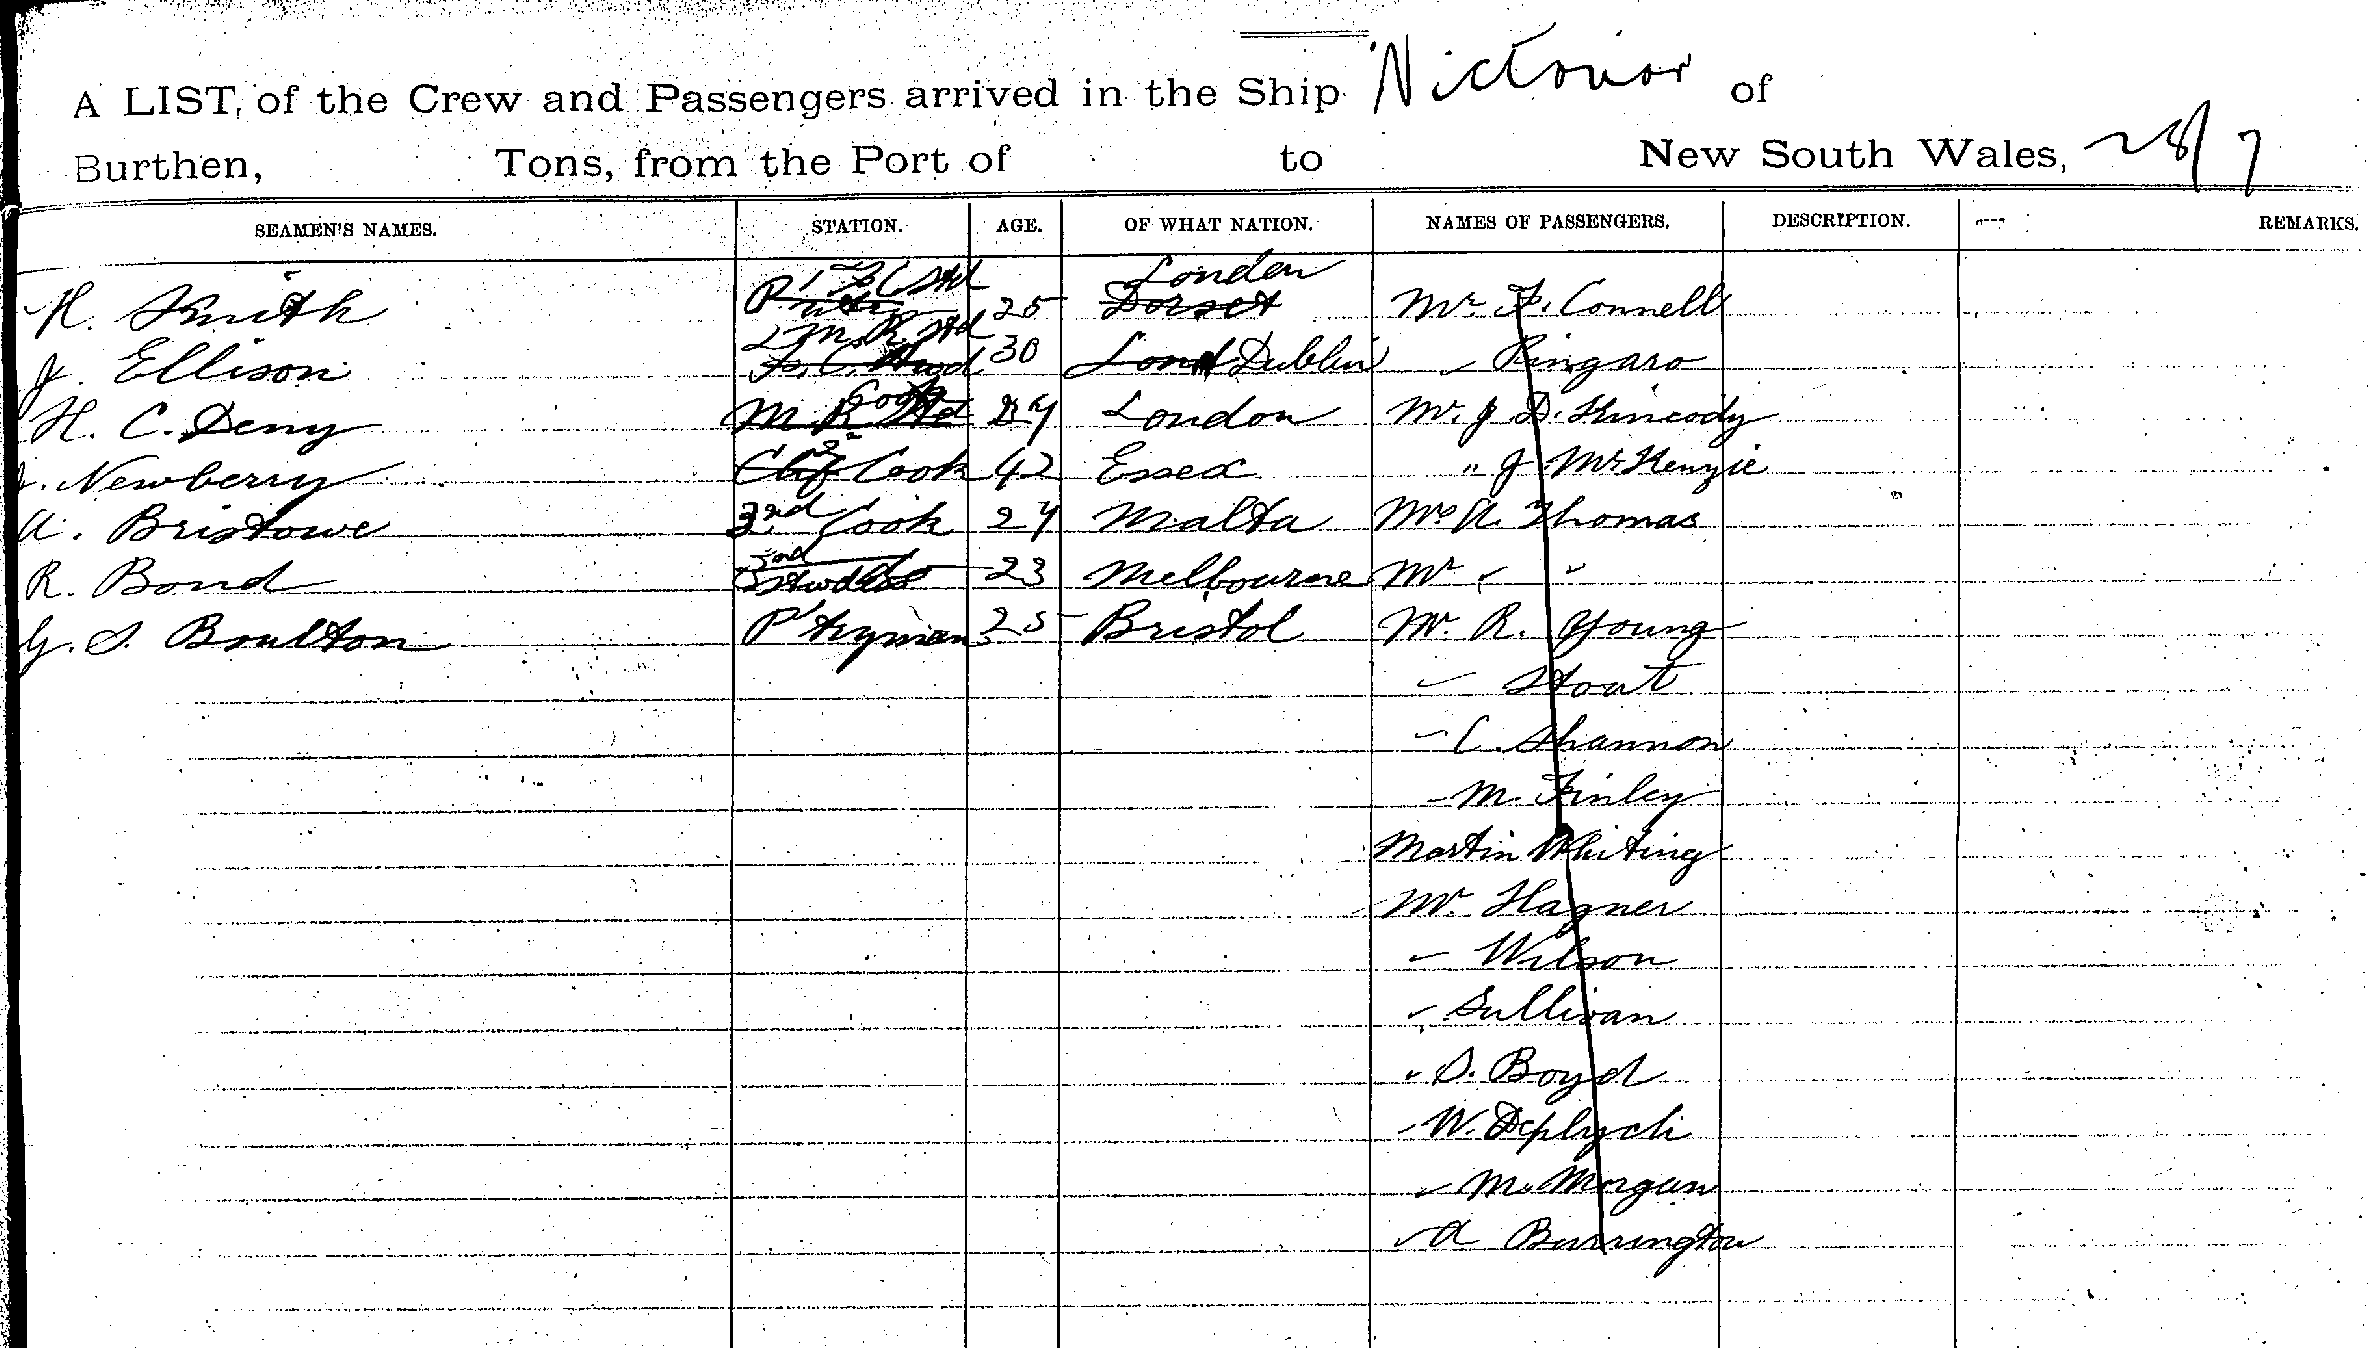 A LIST, of the Crew and Passengers arrived in the Ship Nictonior of
Burthen, Tons, from the Port of to New South Wales, 28/7
SEAMEN'S NAMES. STATION. AGE. OF WHAT NATION. NAMES OF PASSENGERS. DESCRIPTION. REMARKS.
H. Smith 25 London Dorset Mr F. Connell
J. Ellison 30 Dublin " Ringaro
H. C. Deny M R Std Cook London Mr. J D.
Newberry Cook 42 Essex " J McKenzie
A. Bristowe 3rd Cook 24 Malta A. Thomas
R. Bond 23 Melbourne Mr " "
G. S. Boulton P'tryman 25 Bristol Mr. R. Young
" Stout
" C. Shannon
" M. Finley
Martin Whiting
Mr. Hagner
" Wilson
" Sullivan
" D. Boyd
" W.
" M. Morgan
" A Burrington